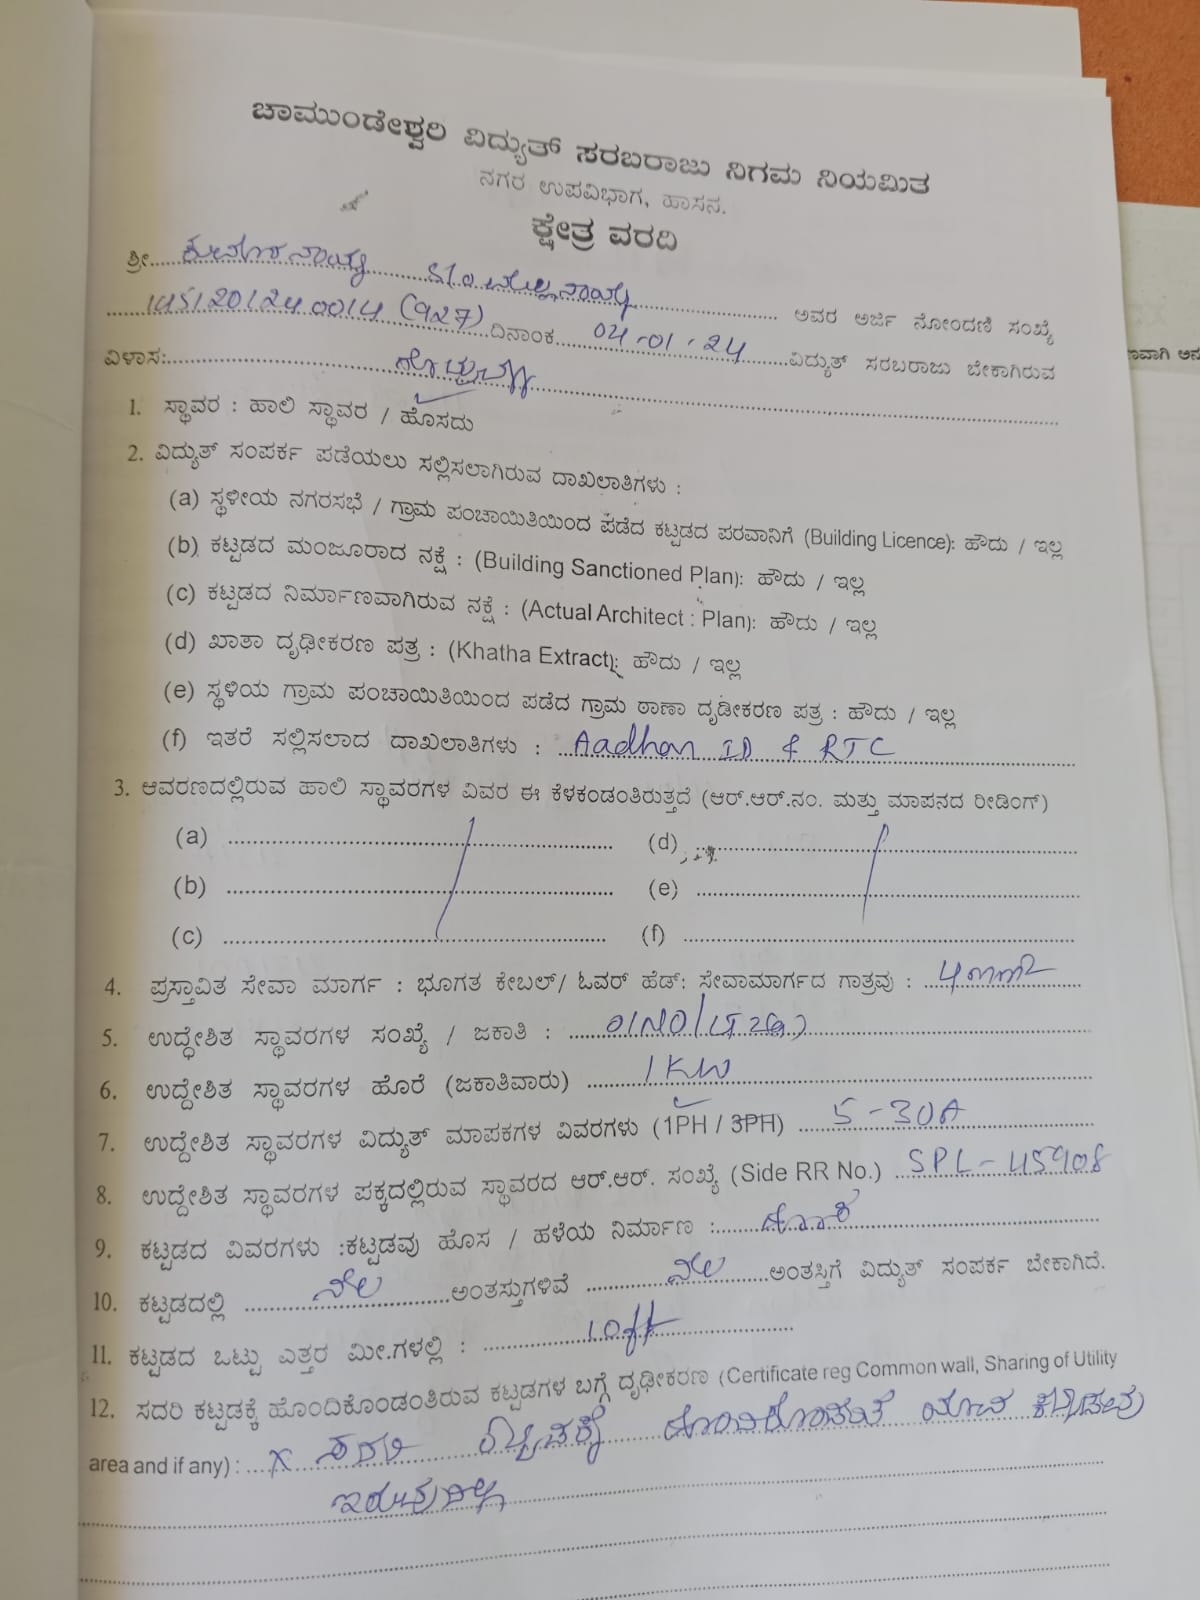 ಚಾಮುಂಡೇಶ್ವರಿ ವಿದ್ಯುತ್ ಸರಬರಾಜು ನಿಗಮ ನಿಯಮಿತ
ನಗರ ಉಪವಿಭಾಗ, ಹಾಸನ.
ಕ್ಷೇತ್ರ ವರದಿ
ಶ್ರೀ. ಕುಮಾರನಾಯ್ಕ S/o ಅವರ ಅರ್ಜಿ ನೋಂದಣಿ ಸಂಖ್ಯೆ
(927) ದಿನಾಂಕ 04-01-24 ವಿದ್ಯುತ್ ಸರಬರಾಜು ಬೇಕಾಗಿರುವ
ವಿಳಾಸ:
1. ಸ್ಥಾವರ : ಹಾಲಿ ಸ್ಥಾವರ / ಹೊಸದು
2. ವಿದ್ಯುತ್ ಸಂಪರ್ಕ ಪಡೆಯಲು ಸಲ್ಲಿಸಲಾಗಿರುವ ದಾಖಲಾತಿಗಳು :
(a) ಸ್ಥಳೀಯ ನಗರಸಭೆ / ಗ್ರಾಮ ಪಂಚಾಯಿತಿಯಿಂದ ಪಡೆದ ಕಟ್ಟಡದ ಪರವಾನಿಗೆ (Building Licence): ಹೌದು / ಇಲ್ಲ
(b) ಕಟ್ಟಡದ ಮಂಜೂರಾದ ನಕ್ಷೆ : (Building Sanctioned Plan): ಹೌದು / ಇಲ್ಲ
(c) ಕಟ್ಟಡದ ನಿರ್ಮಾಣವಾಗಿರುವ ನಕ್ಷೆ : (Actual Architect : Plan): ಹೌದು / ಇಲ್ಲ
(d) ಖಾತಾ ದೃಢೀಕರಣ ಪತ್ರ : (Khatha Extract): ಹೌದು / ಇಲ್ಲ
(e) ಸ್ಥಳಿಯ ಗ್ರಾಮ ಪಂಚಾಯಿತಿಯಿಂದ ಪಡೆದ ಗ್ರಾಮ ಠಾಣಾ ದೃಡೀಕರಣ ಪತ್ರ : ಹೌದು / ಇಲ್ಲ
(f) ಇತರೆ ಸಲ್ಲಿಸಲಾದ ದಾಖಲಾತಿಗಳು : Aadhar ID & RTC
3. ಆವರಣದಲ್ಲಿರುವ ಹಾಲಿ ಸ್ಥಾವರಗಳ ವಿವರ ಈ ಕೆಳಕಂಡಂತಿರುತ್ತದೆ (ಆರ್.ಆರ್.ನಂ. ಮತ್ತು ಮಾಪನದ ರೀಡಿಂಗ್)
(a) (d)
(b) (e)
(c) (f)
4. ಪ್ರಸ್ತಾವಿತ ಸೇವಾ ಮಾರ್ಗ : ಭೂಗತ ಕೇಬಲ್/ ಓವರ್ ಹೆಡ್: ಸೇವಾಮಾರ್ಗದ ಗಾತ್ರವು : 4mm2
5. ಉದ್ಧೇಶಿತ ಸ್ಥಾವರಗಳ ಸಂಖ್ಯೆ / ಜಕಾತಿ : 01NO/LT2(a)
6. ಉದ್ದೇಶಿತ ಸ್ಥಾವರಗಳ ಹೊರೆ (ಜಕಾತಿವಾರು) 1KW
7. ಉದ್ದೇಶಿತ ಸ್ಥಾವರಗಳ ವಿದ್ಯುತ್ ಮಾಪಕಗಳ ವಿವರಗಳು (1PH / 3PH) 5-30A
8. ಉದ್ದೇಶಿತ ಸ್ಥಾವರಗಳ ಪಕ್ಕದಲ್ಲಿರುವ ಸ್ಥಾವರದ ಆರ್.ಆರ್. ಸಂಖ್ಯೆ (Side RR No.) SPL-45908
9. ಕಟ್ಟಡದ ವಿವರಗಳು :ಕಟ್ಟಡವು ಹೊಸ / ಹಳೆಯ ನಿರ್ಮಾಣ :
10. ಕಟ್ಟಡದಲ್ಲಿ ನೆಲ ಅಂತಸ್ತುಗಳಿವೆ ನೆಲ ಅಂತಸ್ತಿಗೆ ವಿದ್ಯುತ್ ಸಂಪರ್ಕ ಬೇಕಾಗಿದೆ.
11. ಕಟ್ಟಡದ ಒಟ್ಟು ಎತ್ತರ ಮೀ.ಗಳಲ್ಲಿ : 10ft
12. ಸದರಿ ಕಟ್ಟಡಕ್ಕೆ ಹೊಂದಿಕೊಂಡಂತಿರುವ ಕಟ್ಟಡಗಳ ಬಗ್ಗೆ ದೃಢೀಕರಣ (Certificate reg Common wall, Sharing of Utility
area and if any) : x ಸದರಿ ಹೊಂದಿಕೊಂಡಂತೆ ಯಾವ ಕಟ್ಟಡವು
ಇರುವುದಿಲ್ಲ